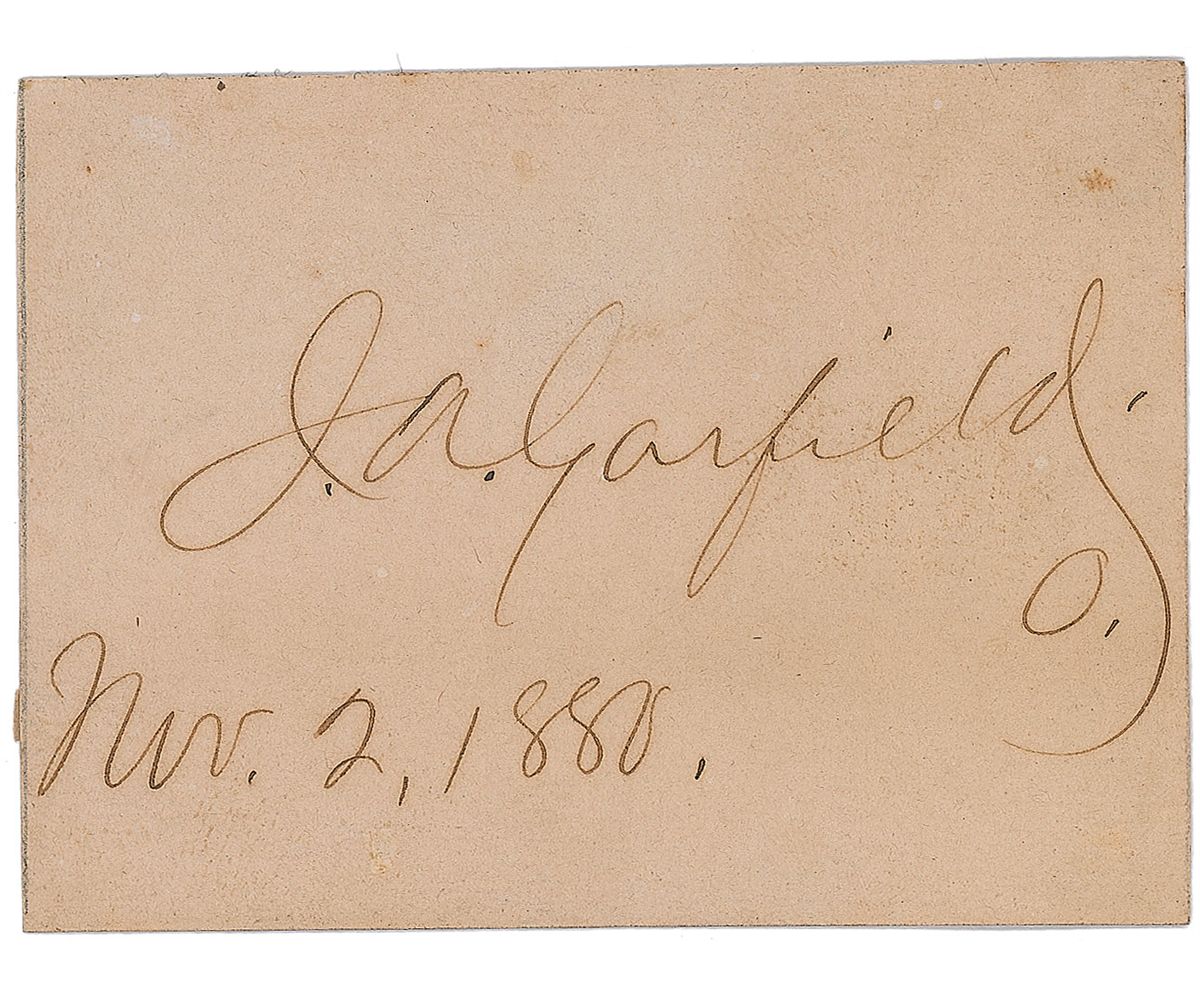 J. A. Garfield.
O.
Nov. 2, 1880.